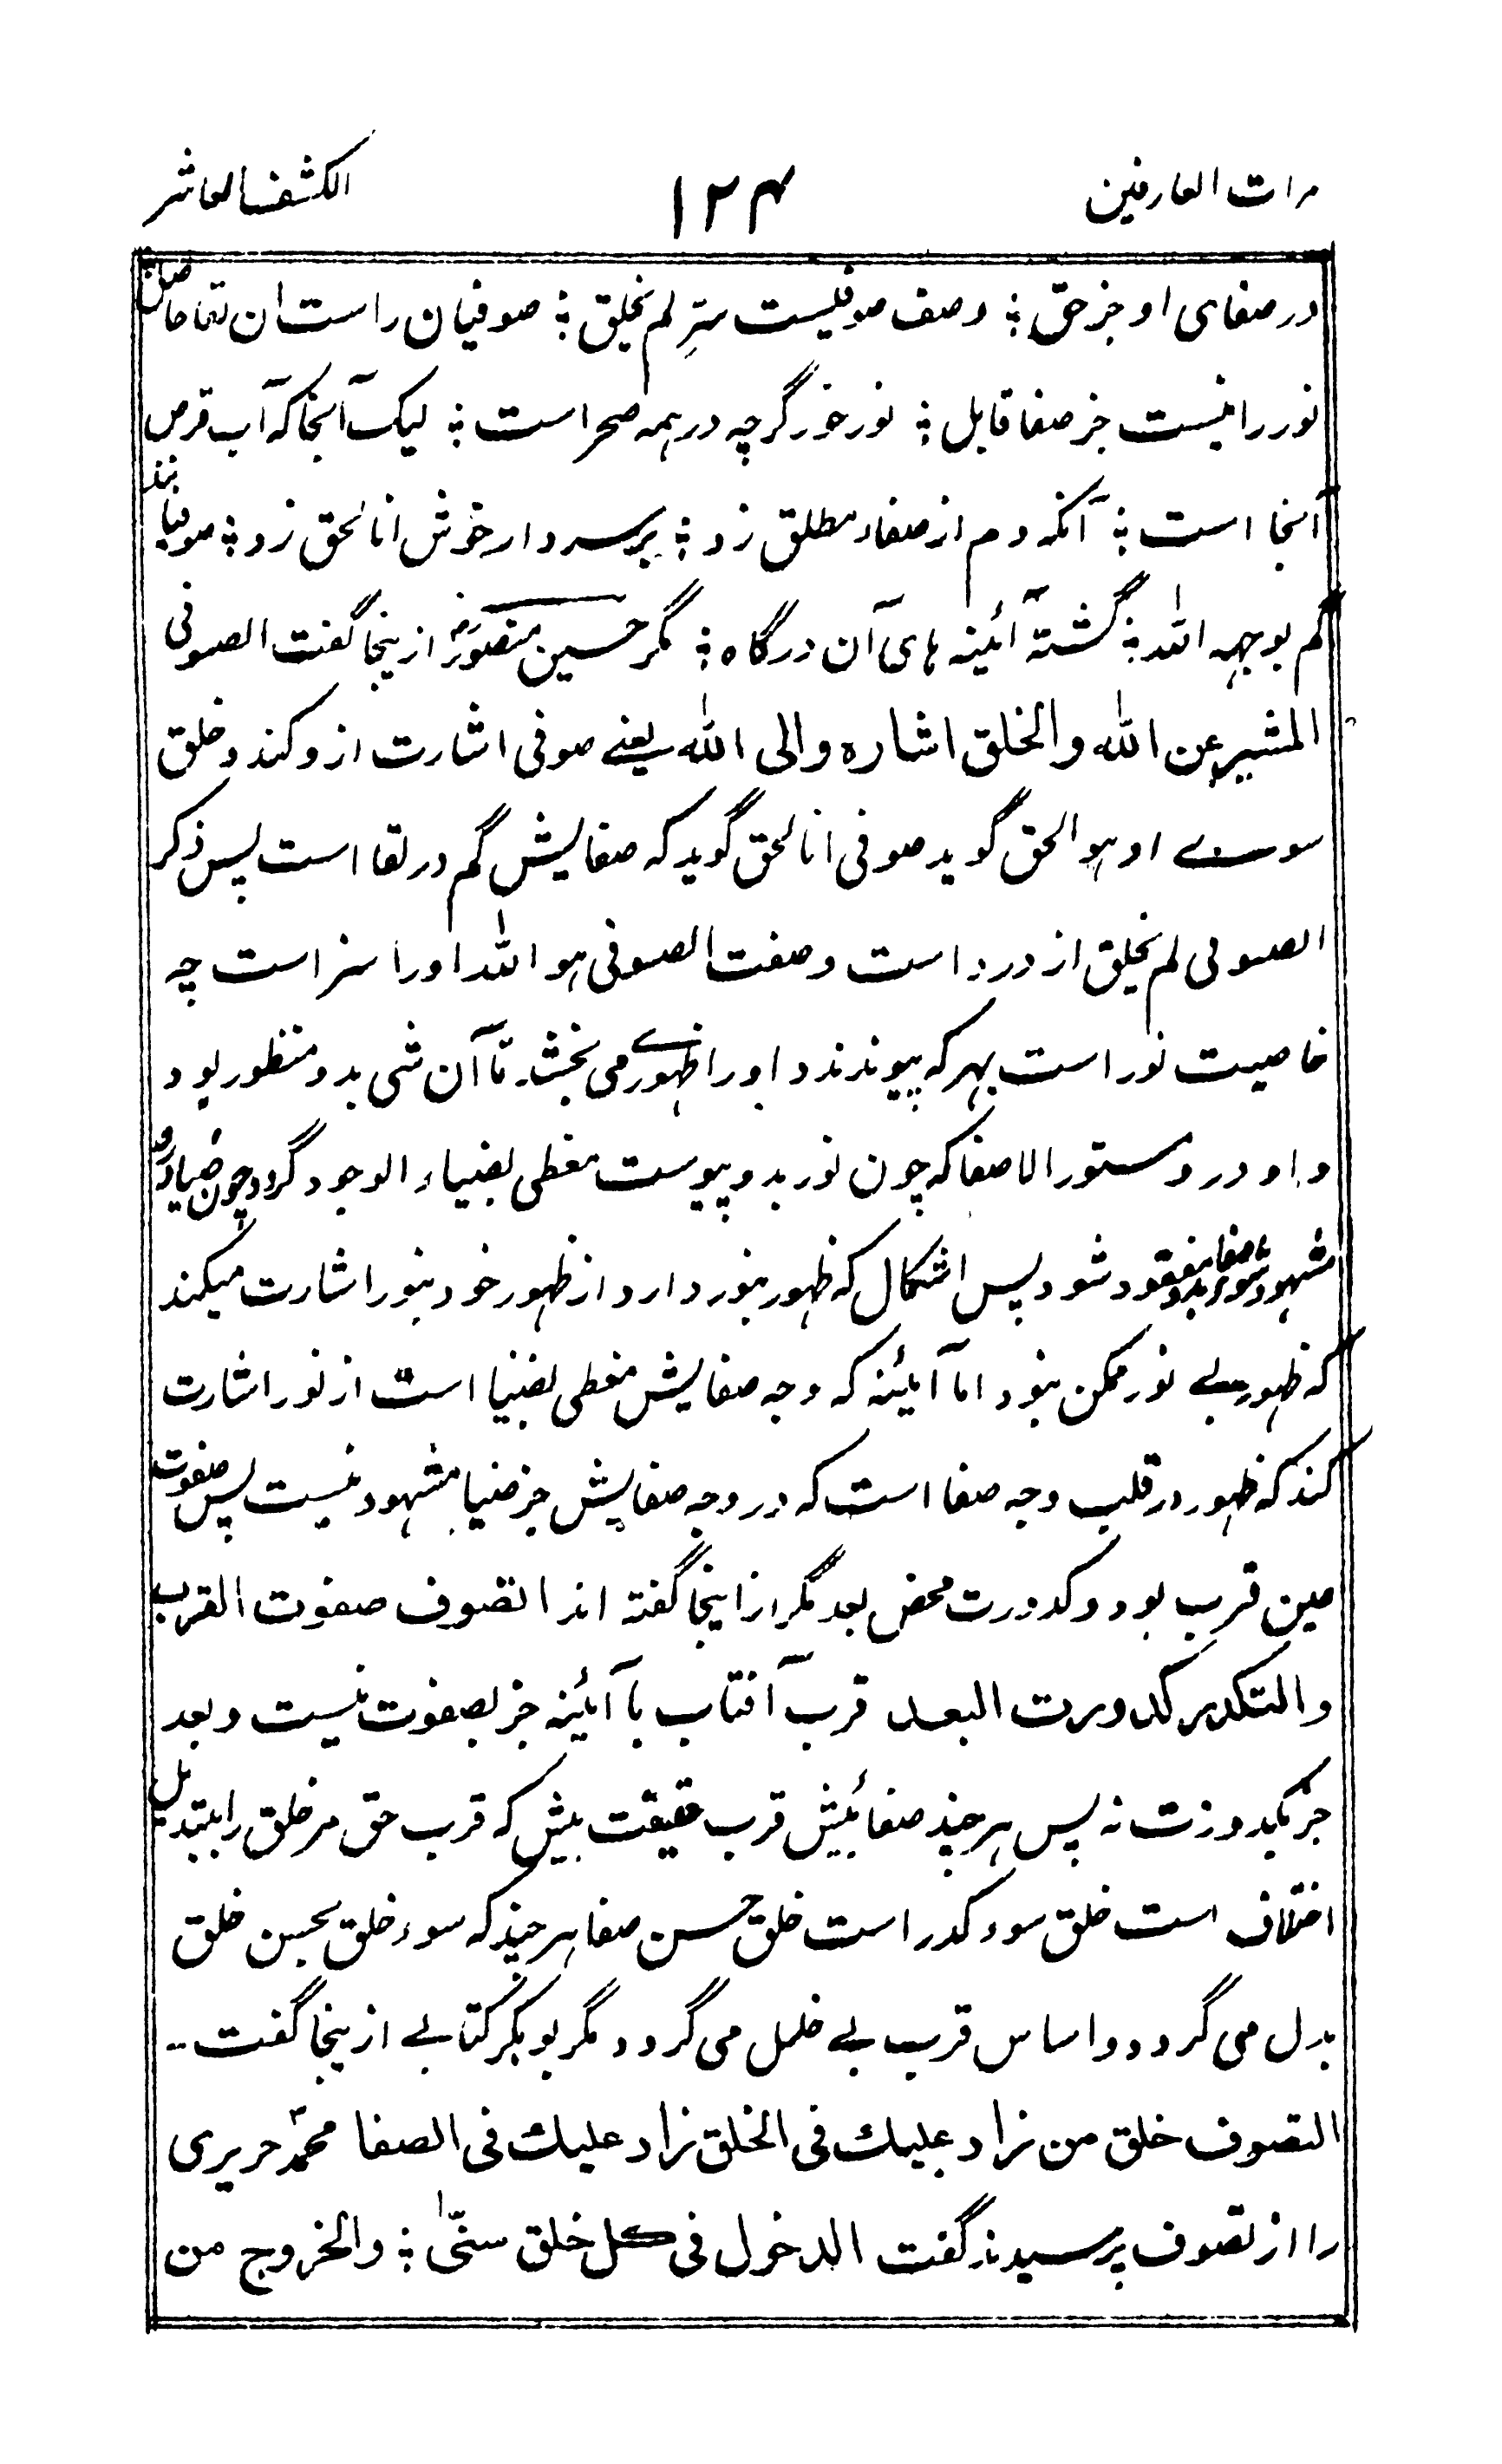 مرات العارفین ۱۲۴ الکشف العاشر
در صفای او جز حق ؛ وصف صوفیست سرّ لم یخلق ؛ صوفیان راست ان لقا حاصل
نور را نیست جز صفا قابل ؛ نور خور گرچه در همه صحر است ؛ لیک آنجا که آب قرص
آنجا است ؛ آنکه دم از صفاء مطلق زد ؛ بر سر دار خوش انا الحق زد ؛ صوفیانند
گم بوجهه الله ؛ گشته آئینه های آن درگاه ؛ مگر حسین منصور ازینجا گفت الصوفی
المشیر عن الله والخلق اشاره والی الله یعنے صوفی اشارت ازو کند و خلق
سوے او هو الحق گوید صوفی انا الحق گوید که صفایش گم در لقا است پس ذکر
الصوفی لم یخلق از درد است وصفت الصوفی هو الله او را سزاست چه
خاصیت نور است بهر که پیوندد او را ظهورے می بخشد تا آن شی بدو منظور بود
و او درو مستور الا صفا که چون نور بدو پیوست مغطی بضیاء الوجود گردد چون ضیا درو
مشهود شود صفا بدو مفقود شود پس اشکال که ظهور بنور دارد از ظهور خود بنور اشارت میکند
که ظهور بے نور ممکن نبود اما آئینه که وجه صفایش مغطی بضیا است از نور اشارت
کند که ظهور در قلب وجه صفا است که در وجه صفایش جز ضیا مشهود نیست پس صفوت
عین قرب بود و کدورت محض بعد مگر از اینجا گفته اند التصوف صفوت القرب
والتکدر کدورت البعد قرب آفتاب با آئینه جز بصفوت نیست و بعد
جز بکدورت نه پس هر چند صفا بیش قرب حقیقت بیش که قرب حق مر خلق را بتبدیل
اخلاق است خلق سوء کدر است خلق حسن صفا هر چند که سوء خلق بحسن خلق
بدل می گردد و اساس قرب بے خلل می گردد مگر بوبکر کتابے ازینجا گفت --
التصوف خلق من زاد علیک فی الخلق زاد علیک فی الصفا محمد حریری
را از تصوف پرسیدند گفت الدخول فی کل خلق سنّی ؛ والخروج من